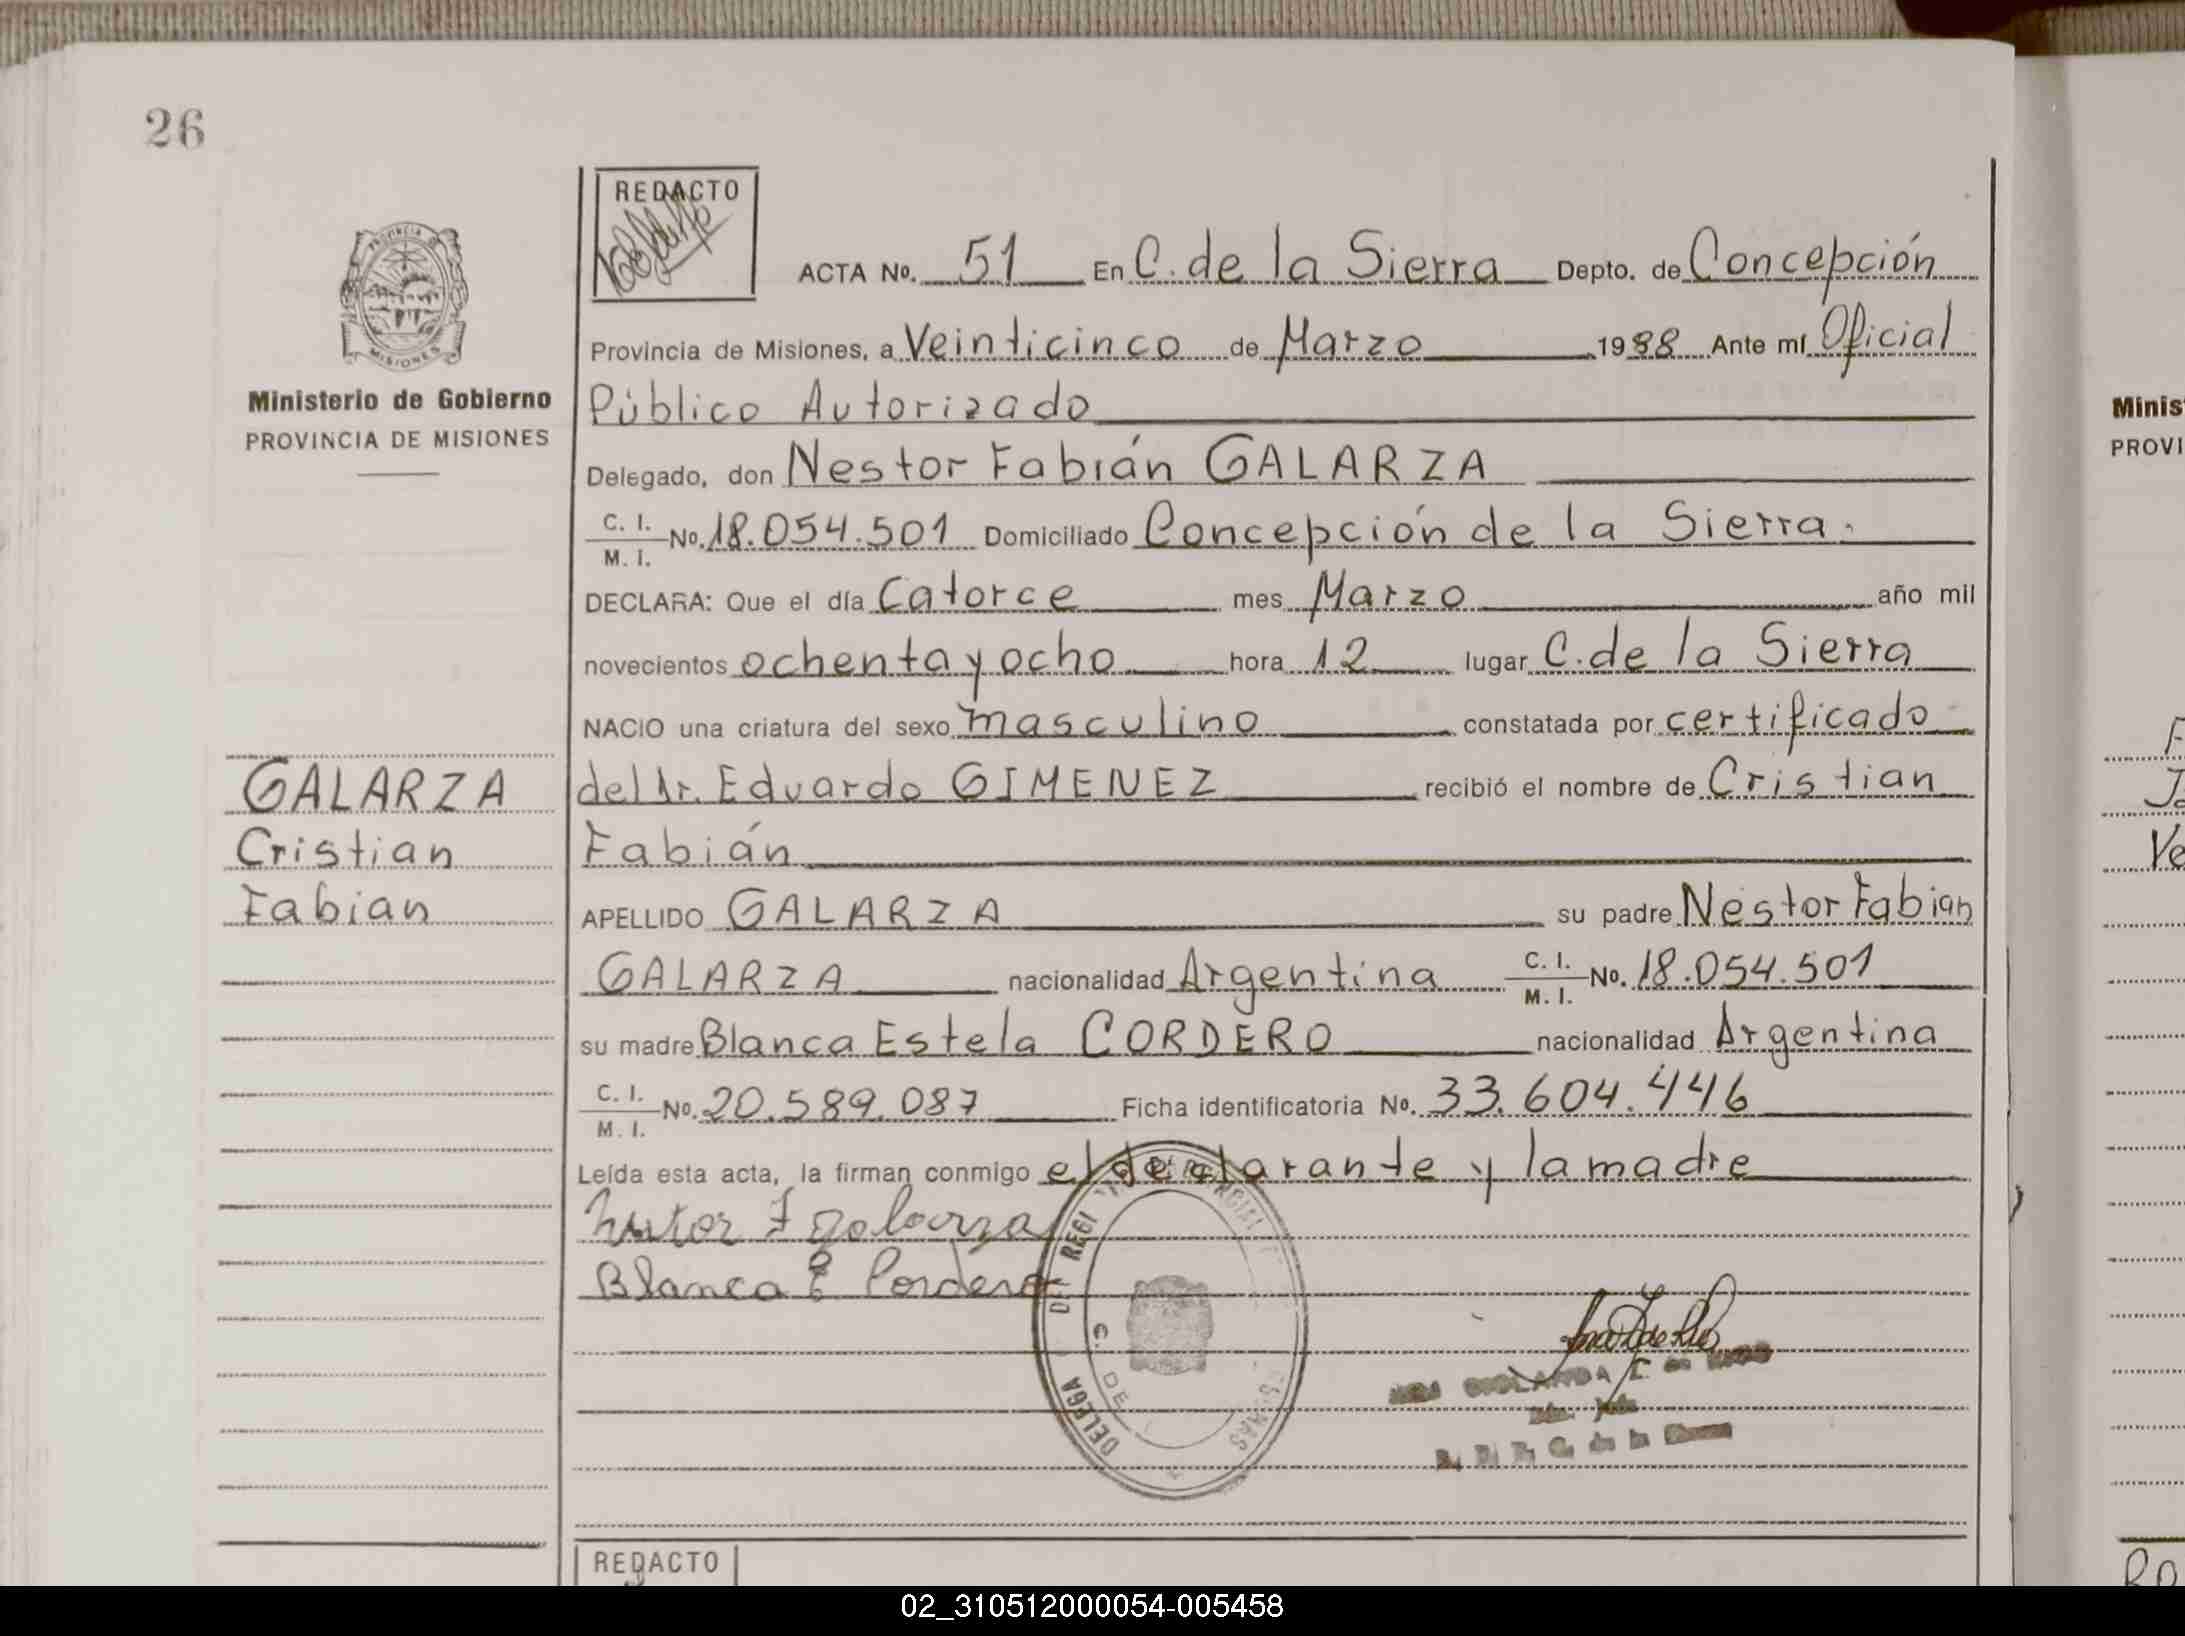 26
REDACTO
ACTA No. 51 En C. de la Sierra Depto. de Concepción
PROVINCIA DE
MISIONES
Ministerio de Gobierno
PROVINCIA DE MISIONES
Provincia de Misiones, a Veinticinco de Marzo 1988 Ante mí Oficial
Público Autorizado
Delegado, don Nestor Fabián GALARZA
C. I. M. I. No. 18.054.501 Domiciliado Concepción de la Sierra.
DECLARA: Que el día Catorce mes Marzo año mil
novecientos ochenta y ocho hora 12 lugar C. de la Sierra
NACIO una criatura del sexo masculino constatada por certificado
del Dr. Eduardo GIMENEZ recibió el nombre de Cristian
Fabián
GALARZA
Cristian
Fabian
APELLIDO GALARZA su padre Nestor Fabian
GALARZA nacionalidad Argentina C. I. M. I. No. 18.054.501
su madre Blanca Estela CORDERO nacionalidad Argentina
C. I. M. I. No. 20.589.087 Ficha identificatoria No. 33.604.446
Leída esta acta, la firman conmigo el declarante y la madre
Nestor F galarza
Blanca E Cordero
DELEGA DEL REGI
C. DE
E. de
C. de la Sierra
REDACTO
Minis
PROVI
Ve
02_310512000054-005458